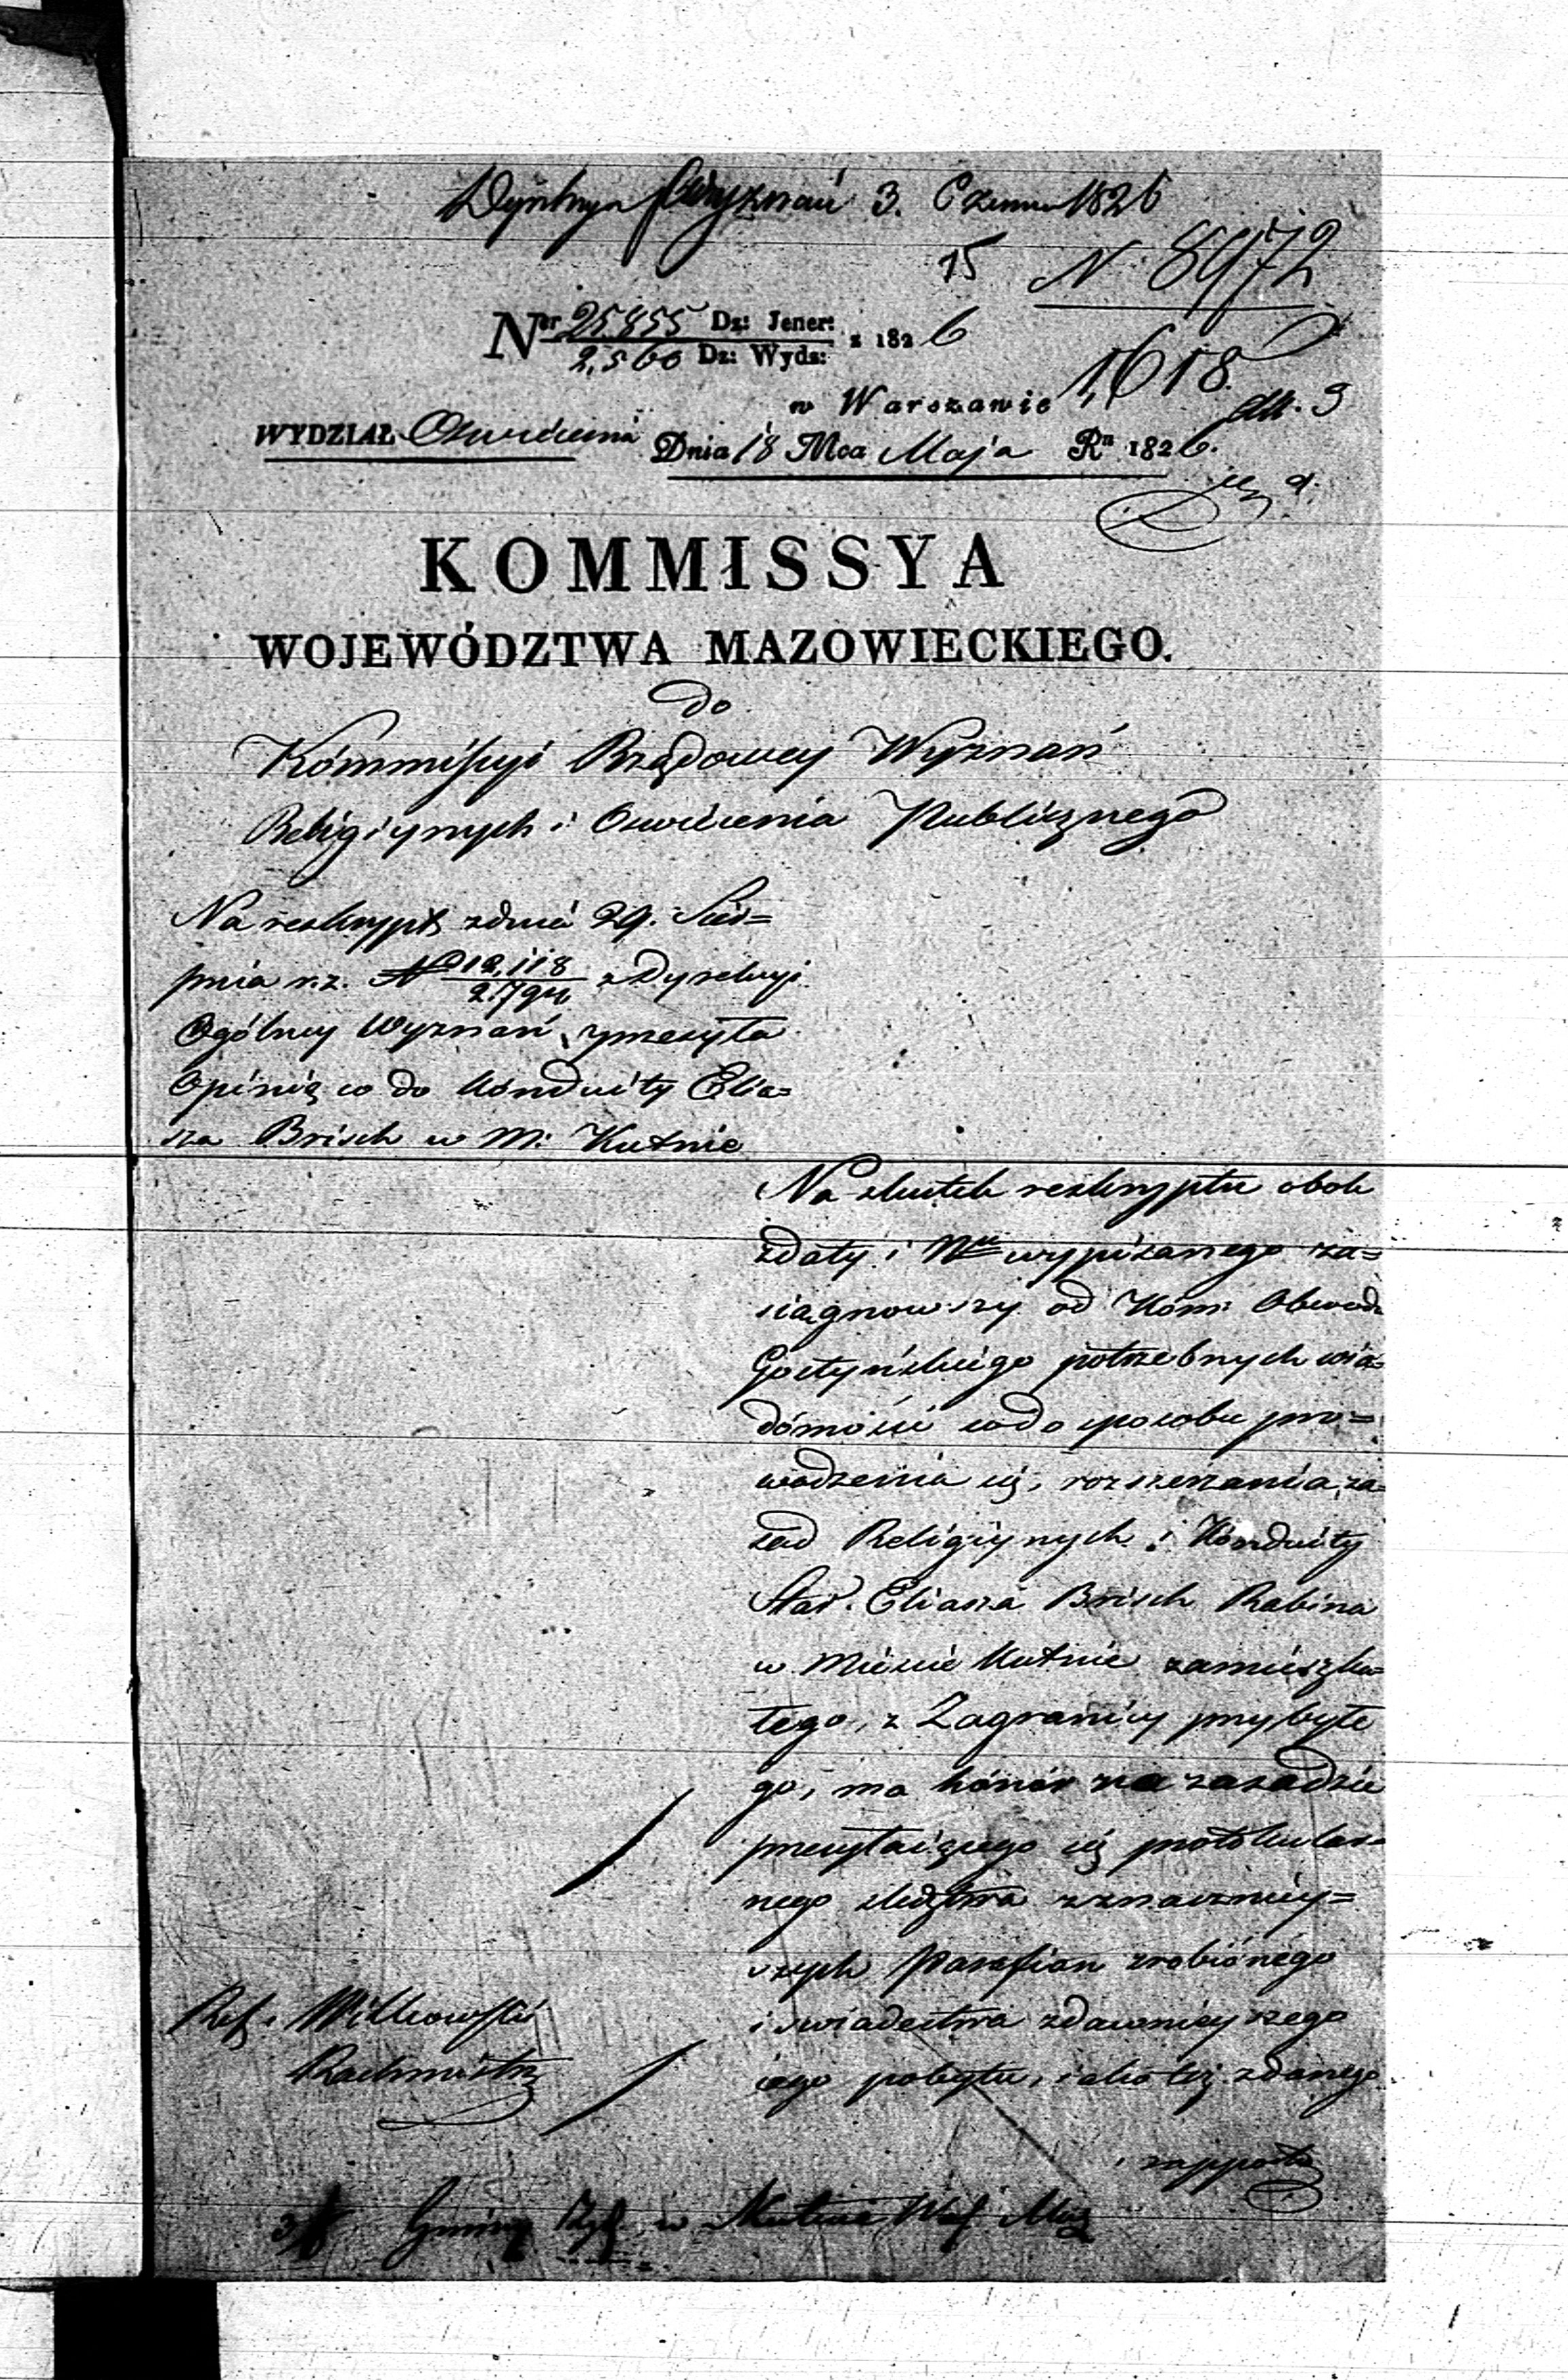 Wyznań 3. Czerwca 1826
15 N. 8972
Ner 25855 Dz: Jener:
2,560 Dz: Wyds: z 1826
1,618.
w Warszawie
WYDZIAŁ Oswiecenia Dnia 18 Mca Maja Ru 1826.
KOMMISSYA
WOJEWÓDZTWA MAZOWIECKIEGO.
do
Kommissyi Rządowey Wyznań
Religiynych i Oswiecenia Publicznego
Na reskrypt z dnia 29. Sier=
pnia r.z. N 12,118 z Dyrekcyi
Ogólney Wyznań, przesyła
Opinią co do Konduity Elia=
sza Brisch w M: Kutnie
Na skutek reskryptu obok
z daty i Nru wypisanego za=
siągnowszy od Kom: Obwodu
Gostyńskiego potrzebnych wia=
domości co do sposobu pro=
wadzenia się, rozszerzania za=
sad Religiynych i Konduity
Star. Eliasza Brisch Rabina
w Mieście Kutnie zamieszka=
łego, z Zagranicy przybyłe
go, ma honor na zasadzie
przesyłaiącego się protokular=
nego sledztwa z znaczniey=
szych Parafian zrobionego
i swiadectwa z dawnieyszego
iego pobytu, iako też z danego
rapportu
Ref. Witkowski
Rachmistrz
Gminy Żyd. w Kutnie Woj. Maz